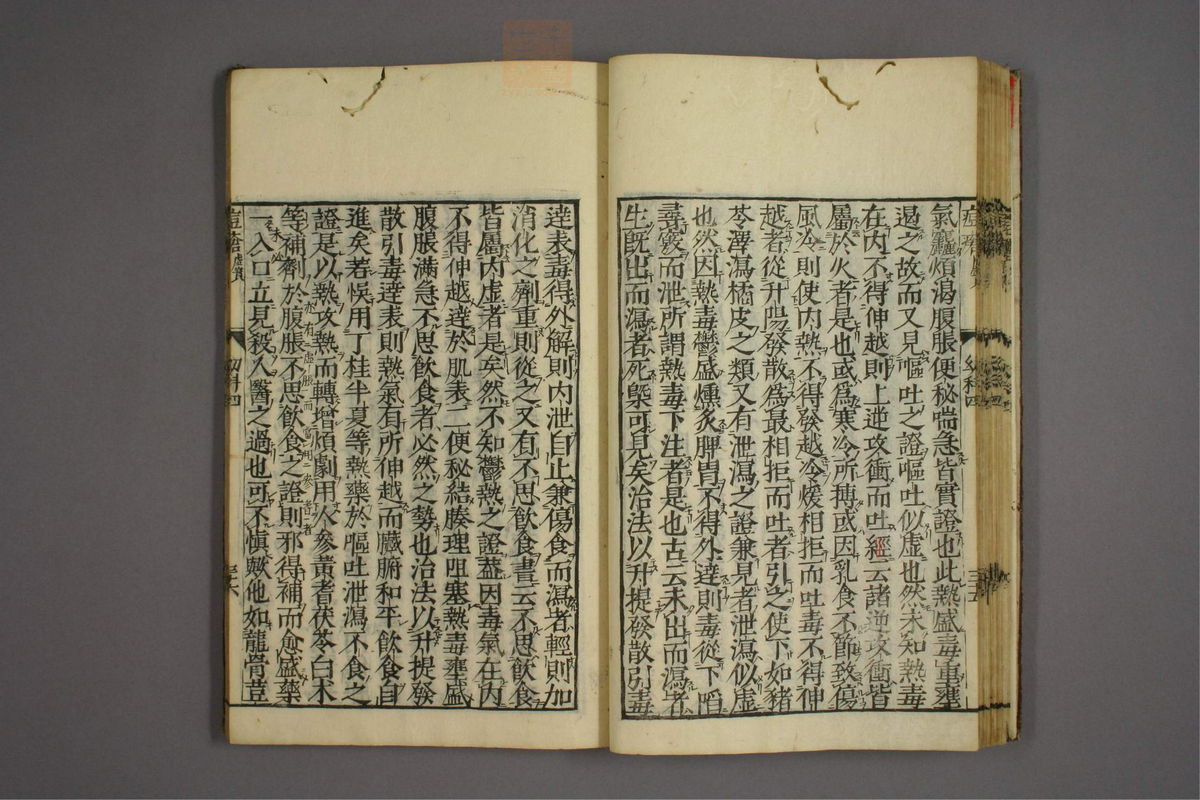 氣麤煩渴腹脹便秘喘急皆實證也此熱盛毒重壅
遏之故而又見嘔吐之證嘔吐似虛也然未知熱毒
在内不得伸越則上逆攻衝而吐經云諸逆攻衝皆
屬於火者是也或爲寒冷所搏或因乳食不節致傷
風冷則使内熱不得發越冷煖相拒而吐毒不得伸
越者從升陽發散爲最相拒而吐者引之使下如豬
苓澤瀉橘皮之類又有泄瀉之證兼見者泄瀉似虛
也然因熱毒鬱盛燻炙脾胃不得外達則毒從下陷
尋竅而泄所謂熱毒下注者是也古云未出而瀉者
生既出而瀉者死槩可見矣治法以升提發散引毒
痘瘡虛實
幼科四
三十五
達表毒得外解則内泄自止兼傷食而瀉者輕則加
消化之劑重則從之又有不思飲食書云不思飲食
皆屬内虛者是矣然不知鬱熱之證蓋因毒氣在内
不得伸越達於肌表二便秘結腠理阻塞熱毒壅盛
腹脹滿急不思飲食者必然之勢也治法以升提發
散引毒達表則熱氣有所伸越而臟腑和平飲食自
進矣若悞用丁桂半夏等熱藥於嘔吐泄瀉不食之
證是以熱攻熱而轉增煩劇用人參黃耆茯苓白术
等補劑於腹脹不思飲食之證則邪得補而愈盛藥
一入口立見殺人醫之過也可不慎歟他如龍骨荳
痘瘡虛實
幼科四
三十六